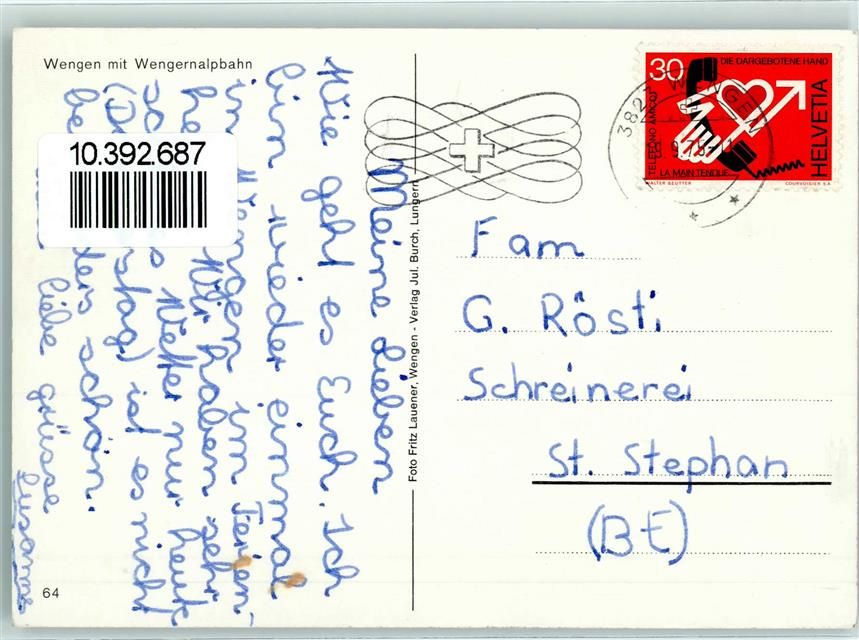 Wengen mit Wengernalpbahn
Meine Lieben
Wie geht es Euch. Ich
bin wieder einmal
in Wengen im Ferien
Wir haben sehr
Wetter nur heute
stag) ist es nicht
schön.
liebe grüsse
Susanne
10.392.687
64
Foto Fritz Lauener, Wengen - Verlag Jul. Burch, Lungern
30
DIE DARGEBOTENE HAND
TELEFONO AMICO
LA MAIN TENDUE
HELVETIA
WALTER BEUTTER
COURVOISIER S.A.
3823 WENGEN
Fam
G. Rösti
Schreinerei
St. Stephan
(BE)